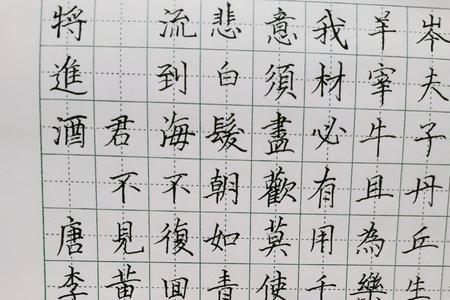 將進酒 唐李
君不見黃
流到海不復回
悲白髮朝如青
意須盡歡莫使
我材必有用千
羊宰牛且為樂
岑夫子丹丘生